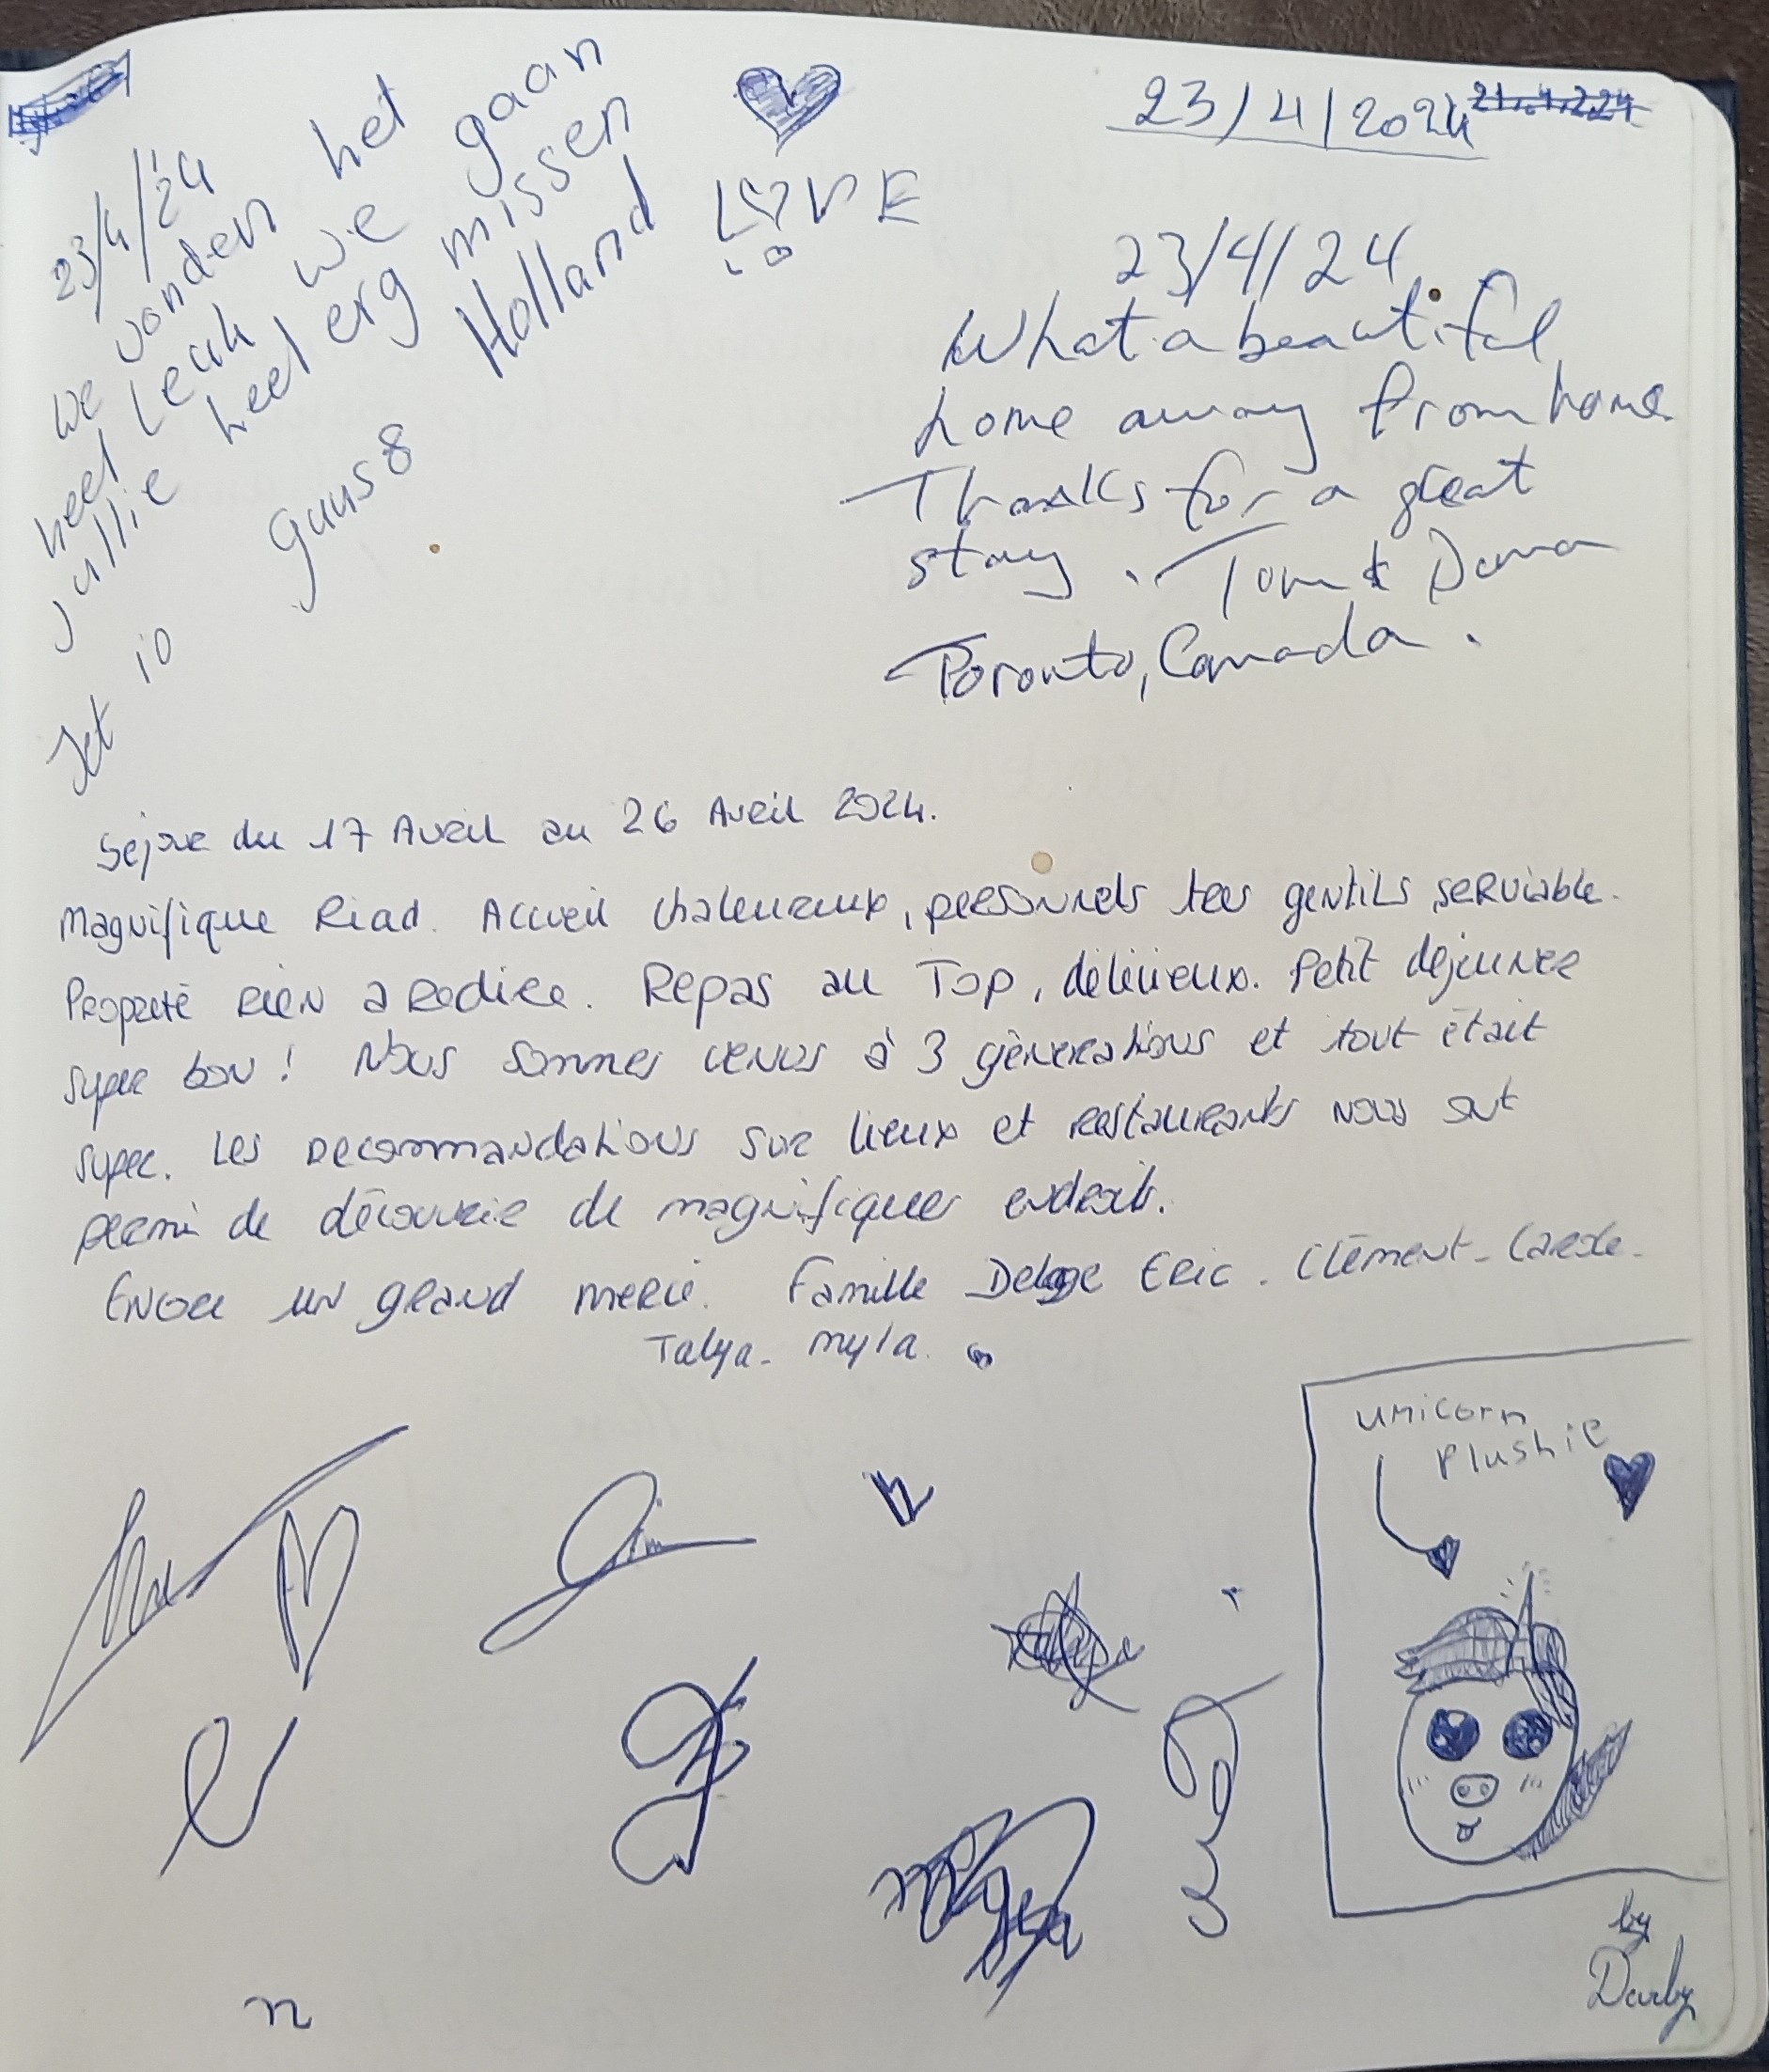 23/4/'24
We vonden het
heel leuk we gaan
jullie heel erg missen
Holland
guus 8
Jet 10
LOVE
23/4/2024
23/4/24
What a beautiful
home away from home
Thanks for a great
stay. Tom & Dana
Toronto, Canada.
Séjour du 17 Avril au 26 Avril 2024.
Magnifique Riad. Accueil chaleureux, personnels tres gentils serviable.
Propreté rien a redire. Repas au Top, délicieux. Petit déjeuner
super bon! Nous sommes venus à 3 générations et tout était
super. Les recommandations sur lieux et restaurants nous ont
permi de découvrir de magnifiques endroits.
Encore un grand merci. Famille Eric - Clément - Carole -
Talya - Myla.
unicorn
plushie
by
Darby